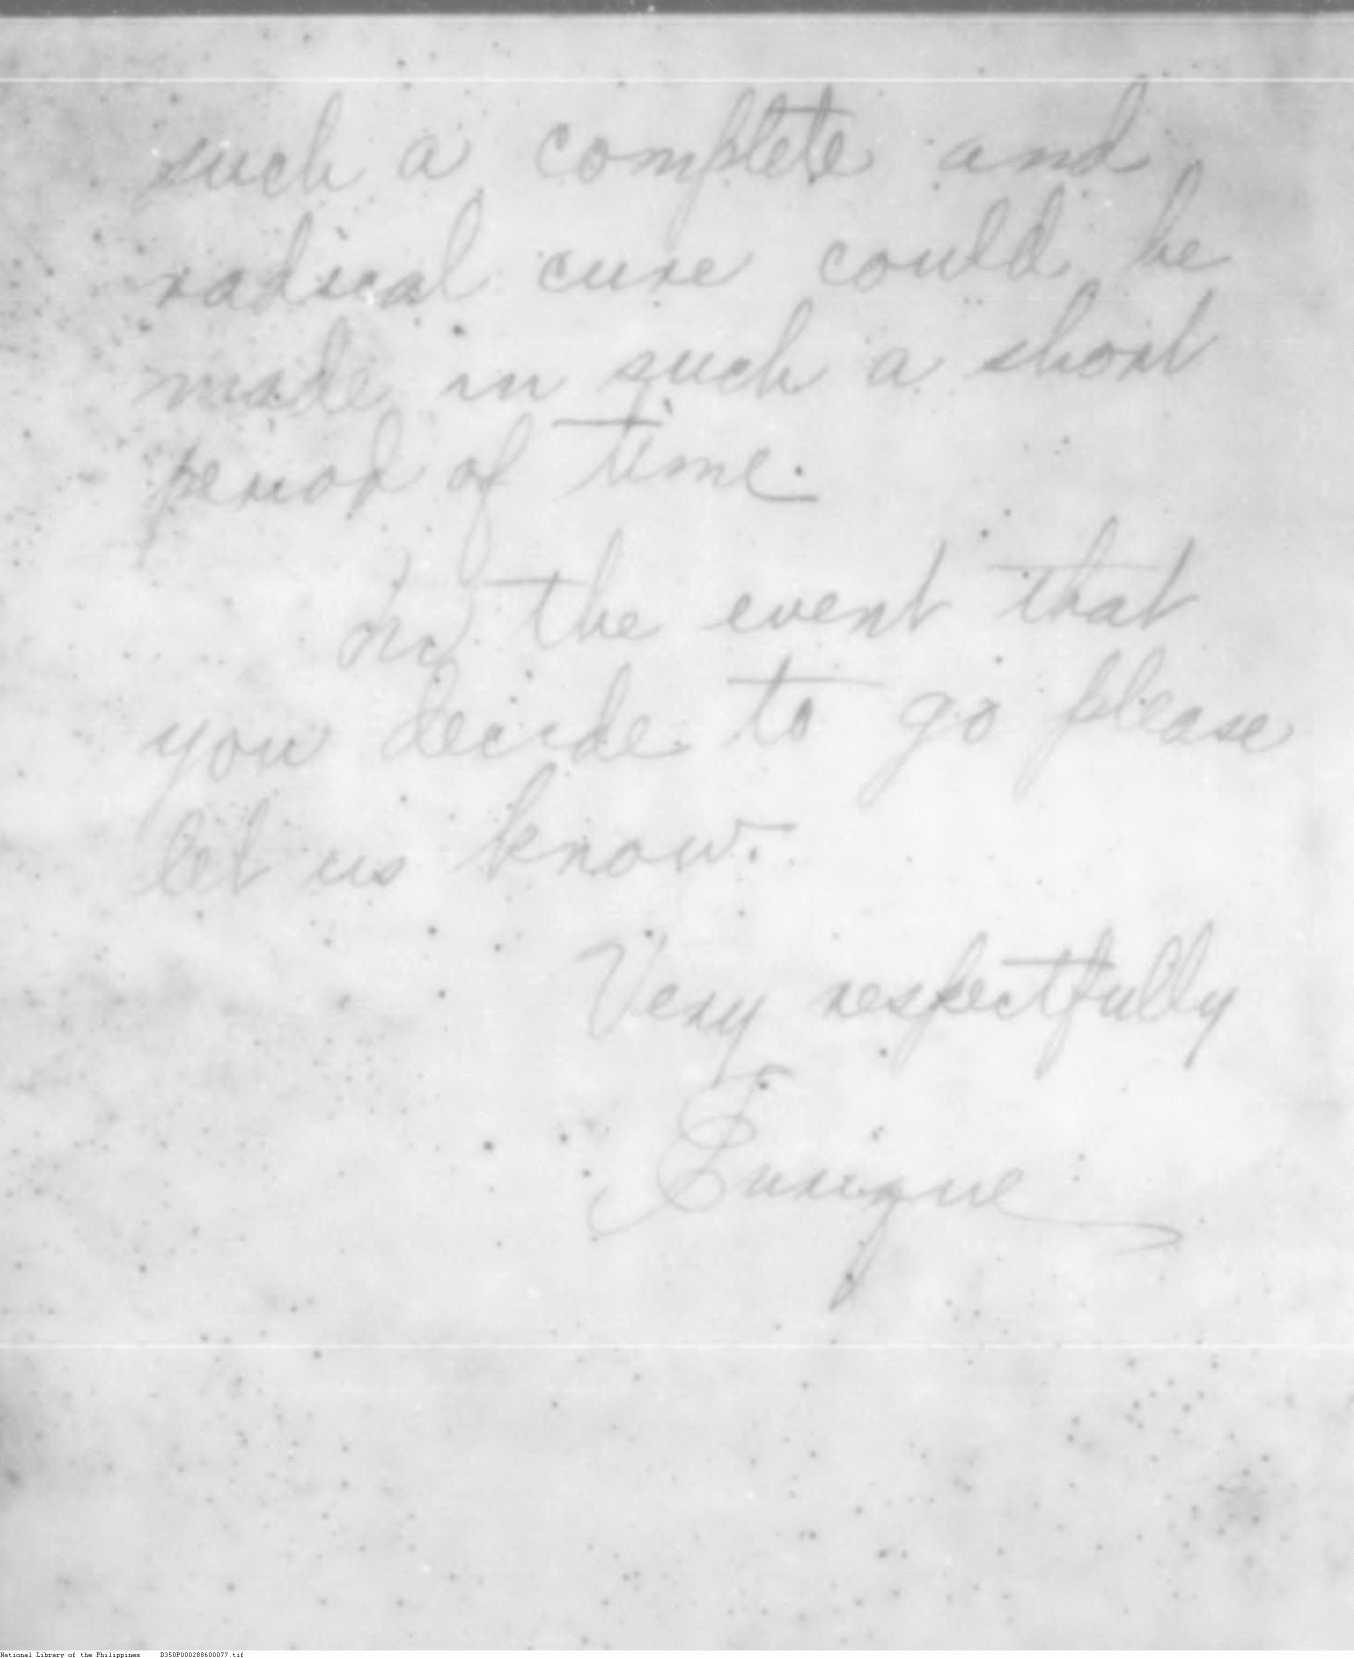 such a complete and
radical cure could be
made in such a short
period of time.
In the event that
you decide to go please
let us know.
Very respectfully
Enrique
National Library of the Philippines D350P000288600077.tif